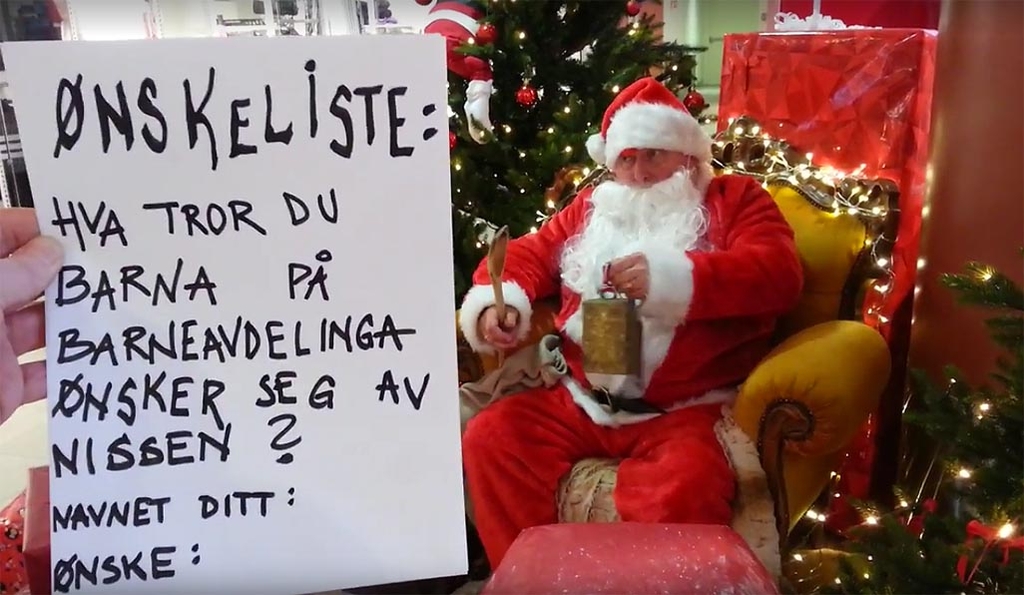 ØNSKELISTE:
HVA TROR DU
BARNA PÅ
BARNEAVDELINGA
ØNSKER SEG AV
NISSEN?
NAVNET DITT:
ØNSKE: